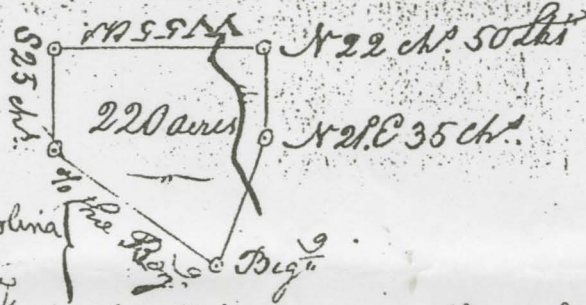 W 55 ch
N 22 chs. 50 Lks
S 25 chs.
220 acres
N 21. E 35 chs.
to the Beg.g
olina
Beg.g